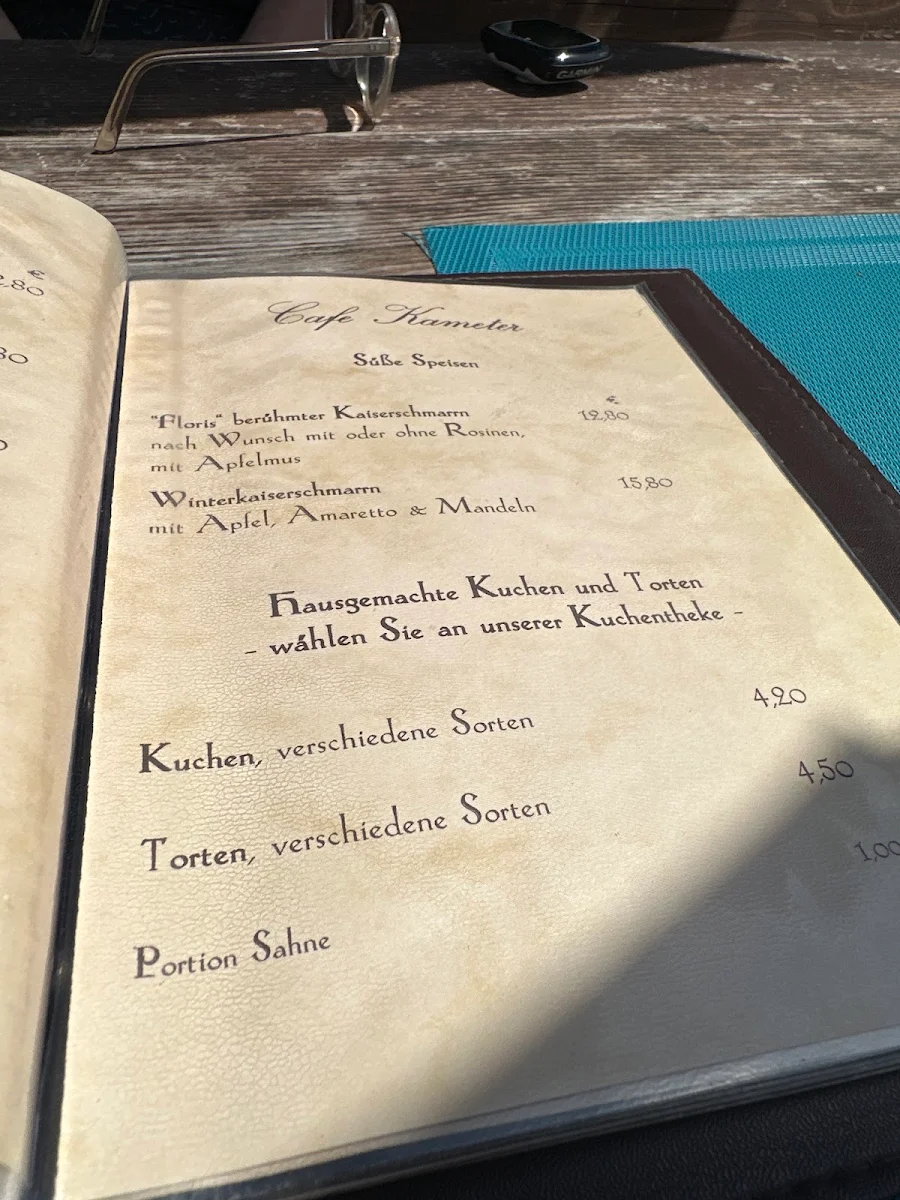 €
,80
Cafe Kameter
Süße Speisen
€
"Floris" berühmter Kaiserschmarrn 12,80
nach Wunsch mit oder ohne Rosinen,
mit Apfelmus
Winterkaiserschmarrn 15,80
mit Apfel, Amaretto & Mandeln
Hausgemachte Kuchen und Torten
- wählen Sie an unserer Kuchentheke -
Kuchen, verschiedene Sorten 4,20
Torten, verschiedene Sorten 4,50
Portion Sahne 1,00
GARMIN